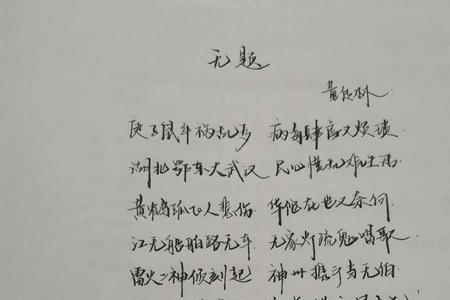 无题
黄林
庚子鼠年祸乱多 病毒肆虐又烦琐
湖北鄂东大武汉 民心惶乱难生活
黄鹤孤飞人悲伤 华佗在世又奈何
江无船舶路无车 无家灯疏鬼唱歌
雷火二神倾刻起 神州携手当无怕